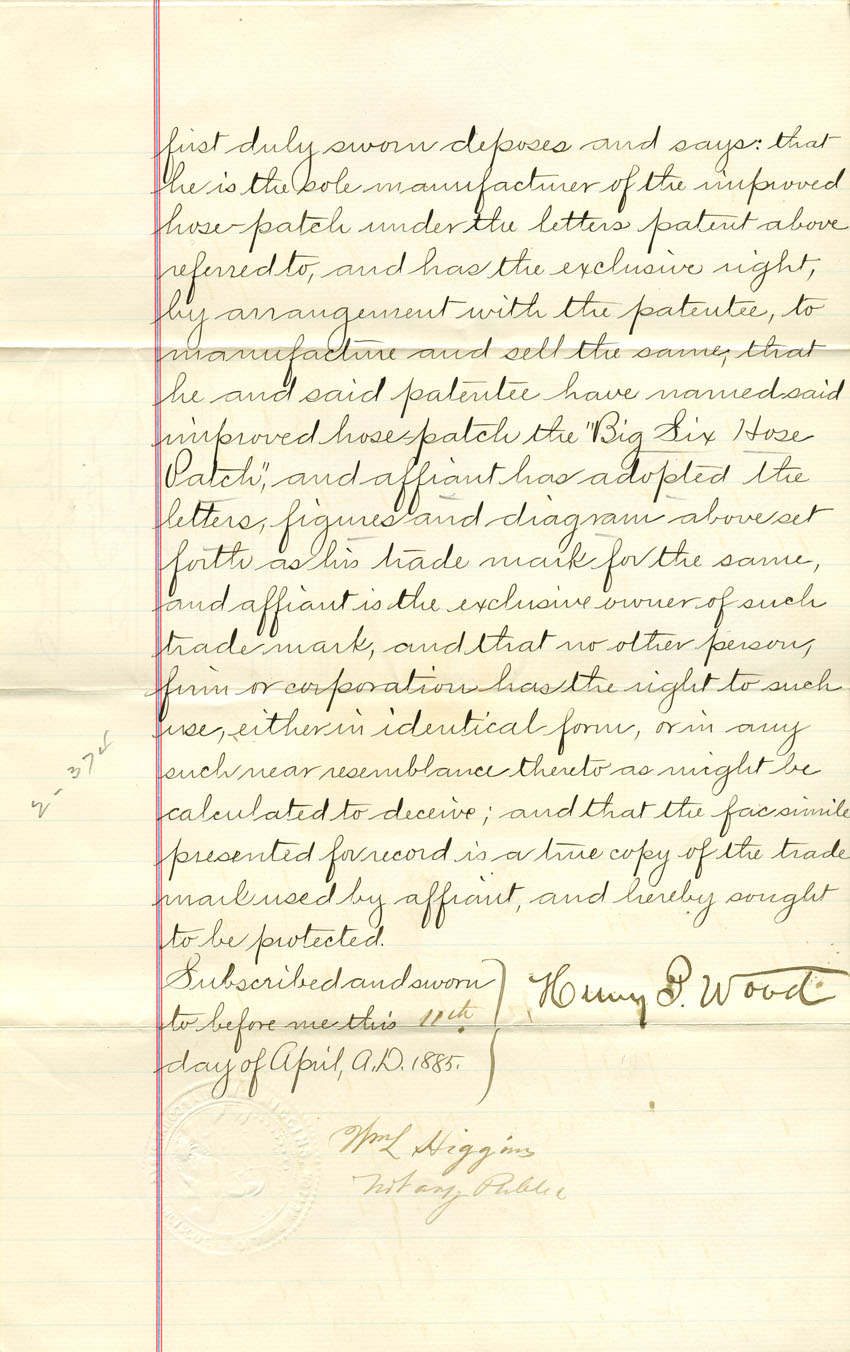 first duly sworn deposes and says: that
he is the sole manufacturer of the improved
hose-patch under the letters patent above
referred to, and has the exclusive right,
by arrangement with the patentee, to
manufacture and sell the same; that
he and said patentee have named said
improved hose-patch the "Big Six Hose
Patch", and affiant has adopted the
letters, figures and diagram above set
forth as his trade mark for the same,
and affiant is the exclusive owner of such
trade mark, and that no other person,
firm or corporation has the right to such
use, either in identical form, or in any
such near resemblance thereto as might be
calculated to deceive; and that the facsimile
presented for record is a true copy of the trade
mark used by affiant, and hereby sought
to be protected.
Subscribed and sworn
to before me this 11th
day of April, A.D. 1885.
Henry P. Wood
Wm L Higgins
Notary Public